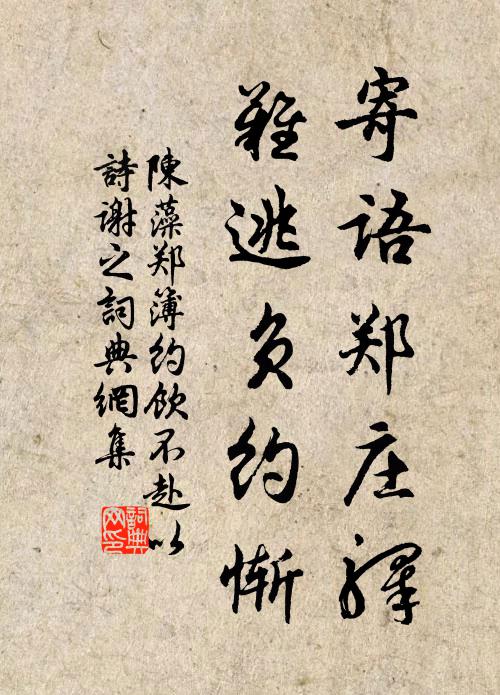 寄语郑庄驛
難逃负约惭
陳藻郑簿约飲不赴以
詩谢之詞典網集
詞典
网印